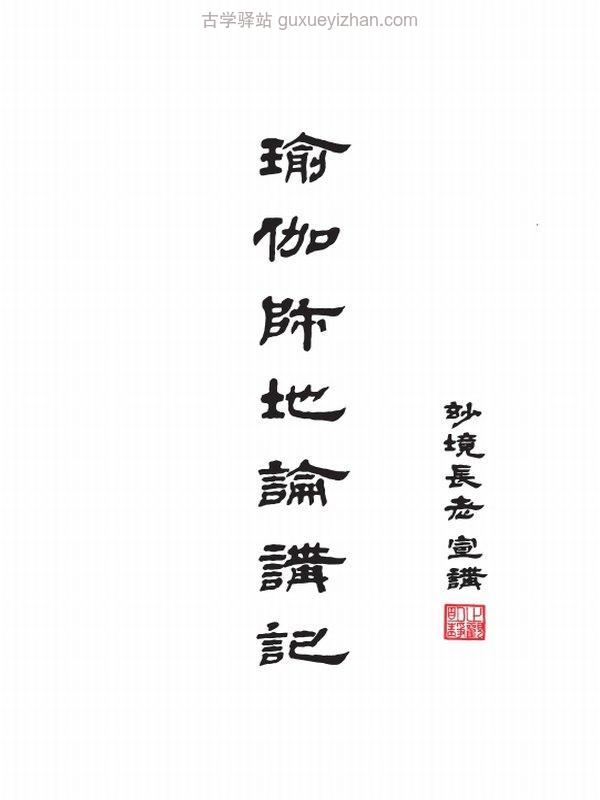 古学驿站 guxueyizhan.com
瑜伽師地論講記
妙境長老宣講